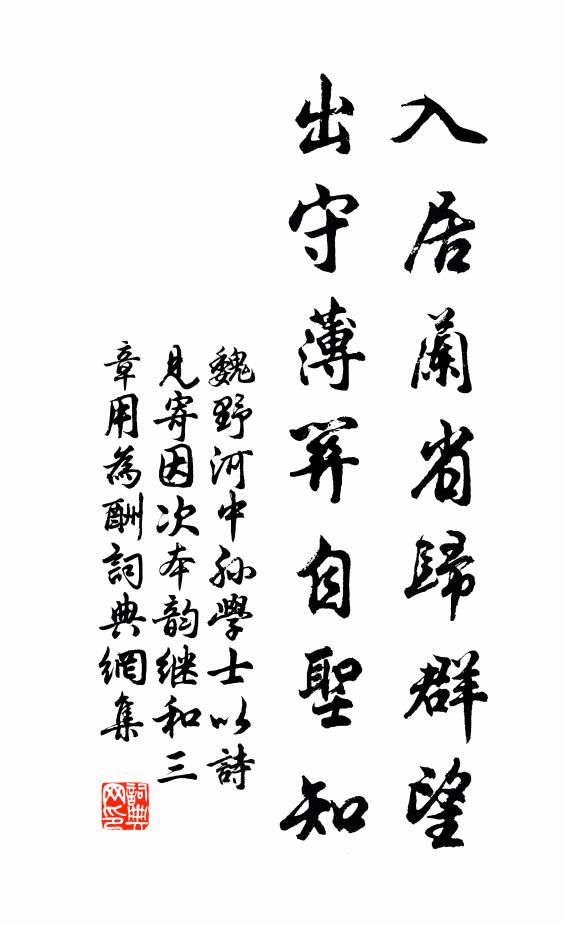 入居蘭省歸群望
出守薄關自聖知
魏野河中孫學士以詩
見寄因次本韵继和三
章用為酬詞典網集
詞典
网印